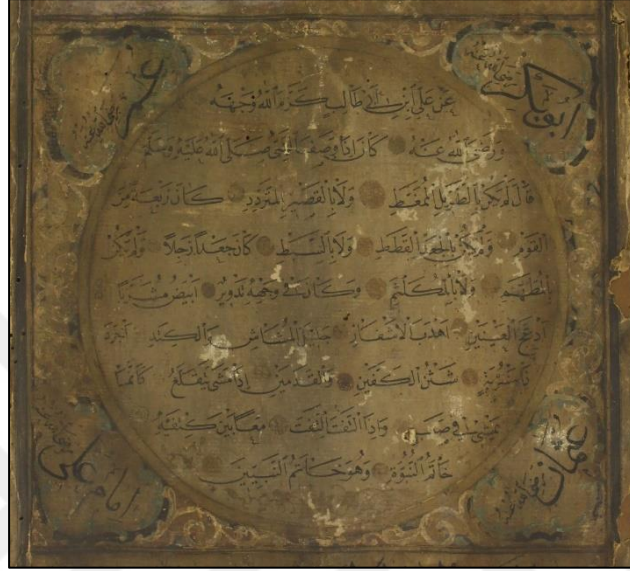 ابوبكر رضي الله عنه
عمر رضي الله عنه
عن علي ابن ابي طالب كرم الله وجهه
ورضي الله عنه كان اذا وصف النبي صلى الله عليه وسلم
قال لم يكن بالطويل الممغط ولا بالقصير المتردد كان ربعة من
القوم ولم يكن بالجعد القطط ولا بالسبط كان جعدا رجلا ولم يكن
بالمطهم ولا بالمكلثم وكان في وجهه تدوير ابيض مشربا
ادعج العينين اهدب الاشفار جليل المشاش والكتد اجرد
ذا مسربة شثن الكفين والقدمين اذا مشى يتقلع كانما
يمشي في صبب واذا التفت التفت معا بين كتفيه
خاتم النبوة وهو خاتم النبيين
عثمان رضي الله عنه
امام علي